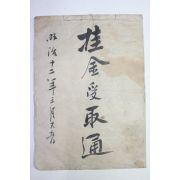 掛金受取通
明治十二年三月大吉